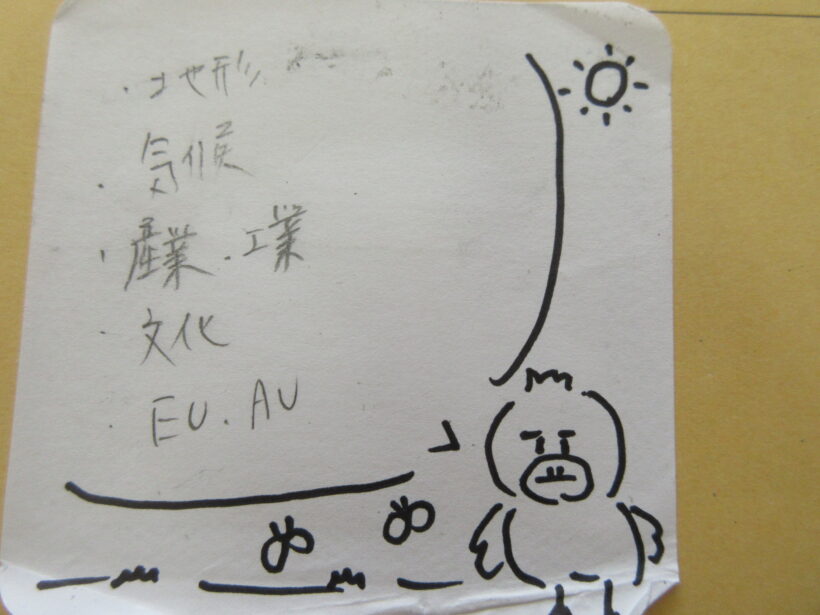 ・地形
・気候
・産業・工業
・文化
・EU・AU